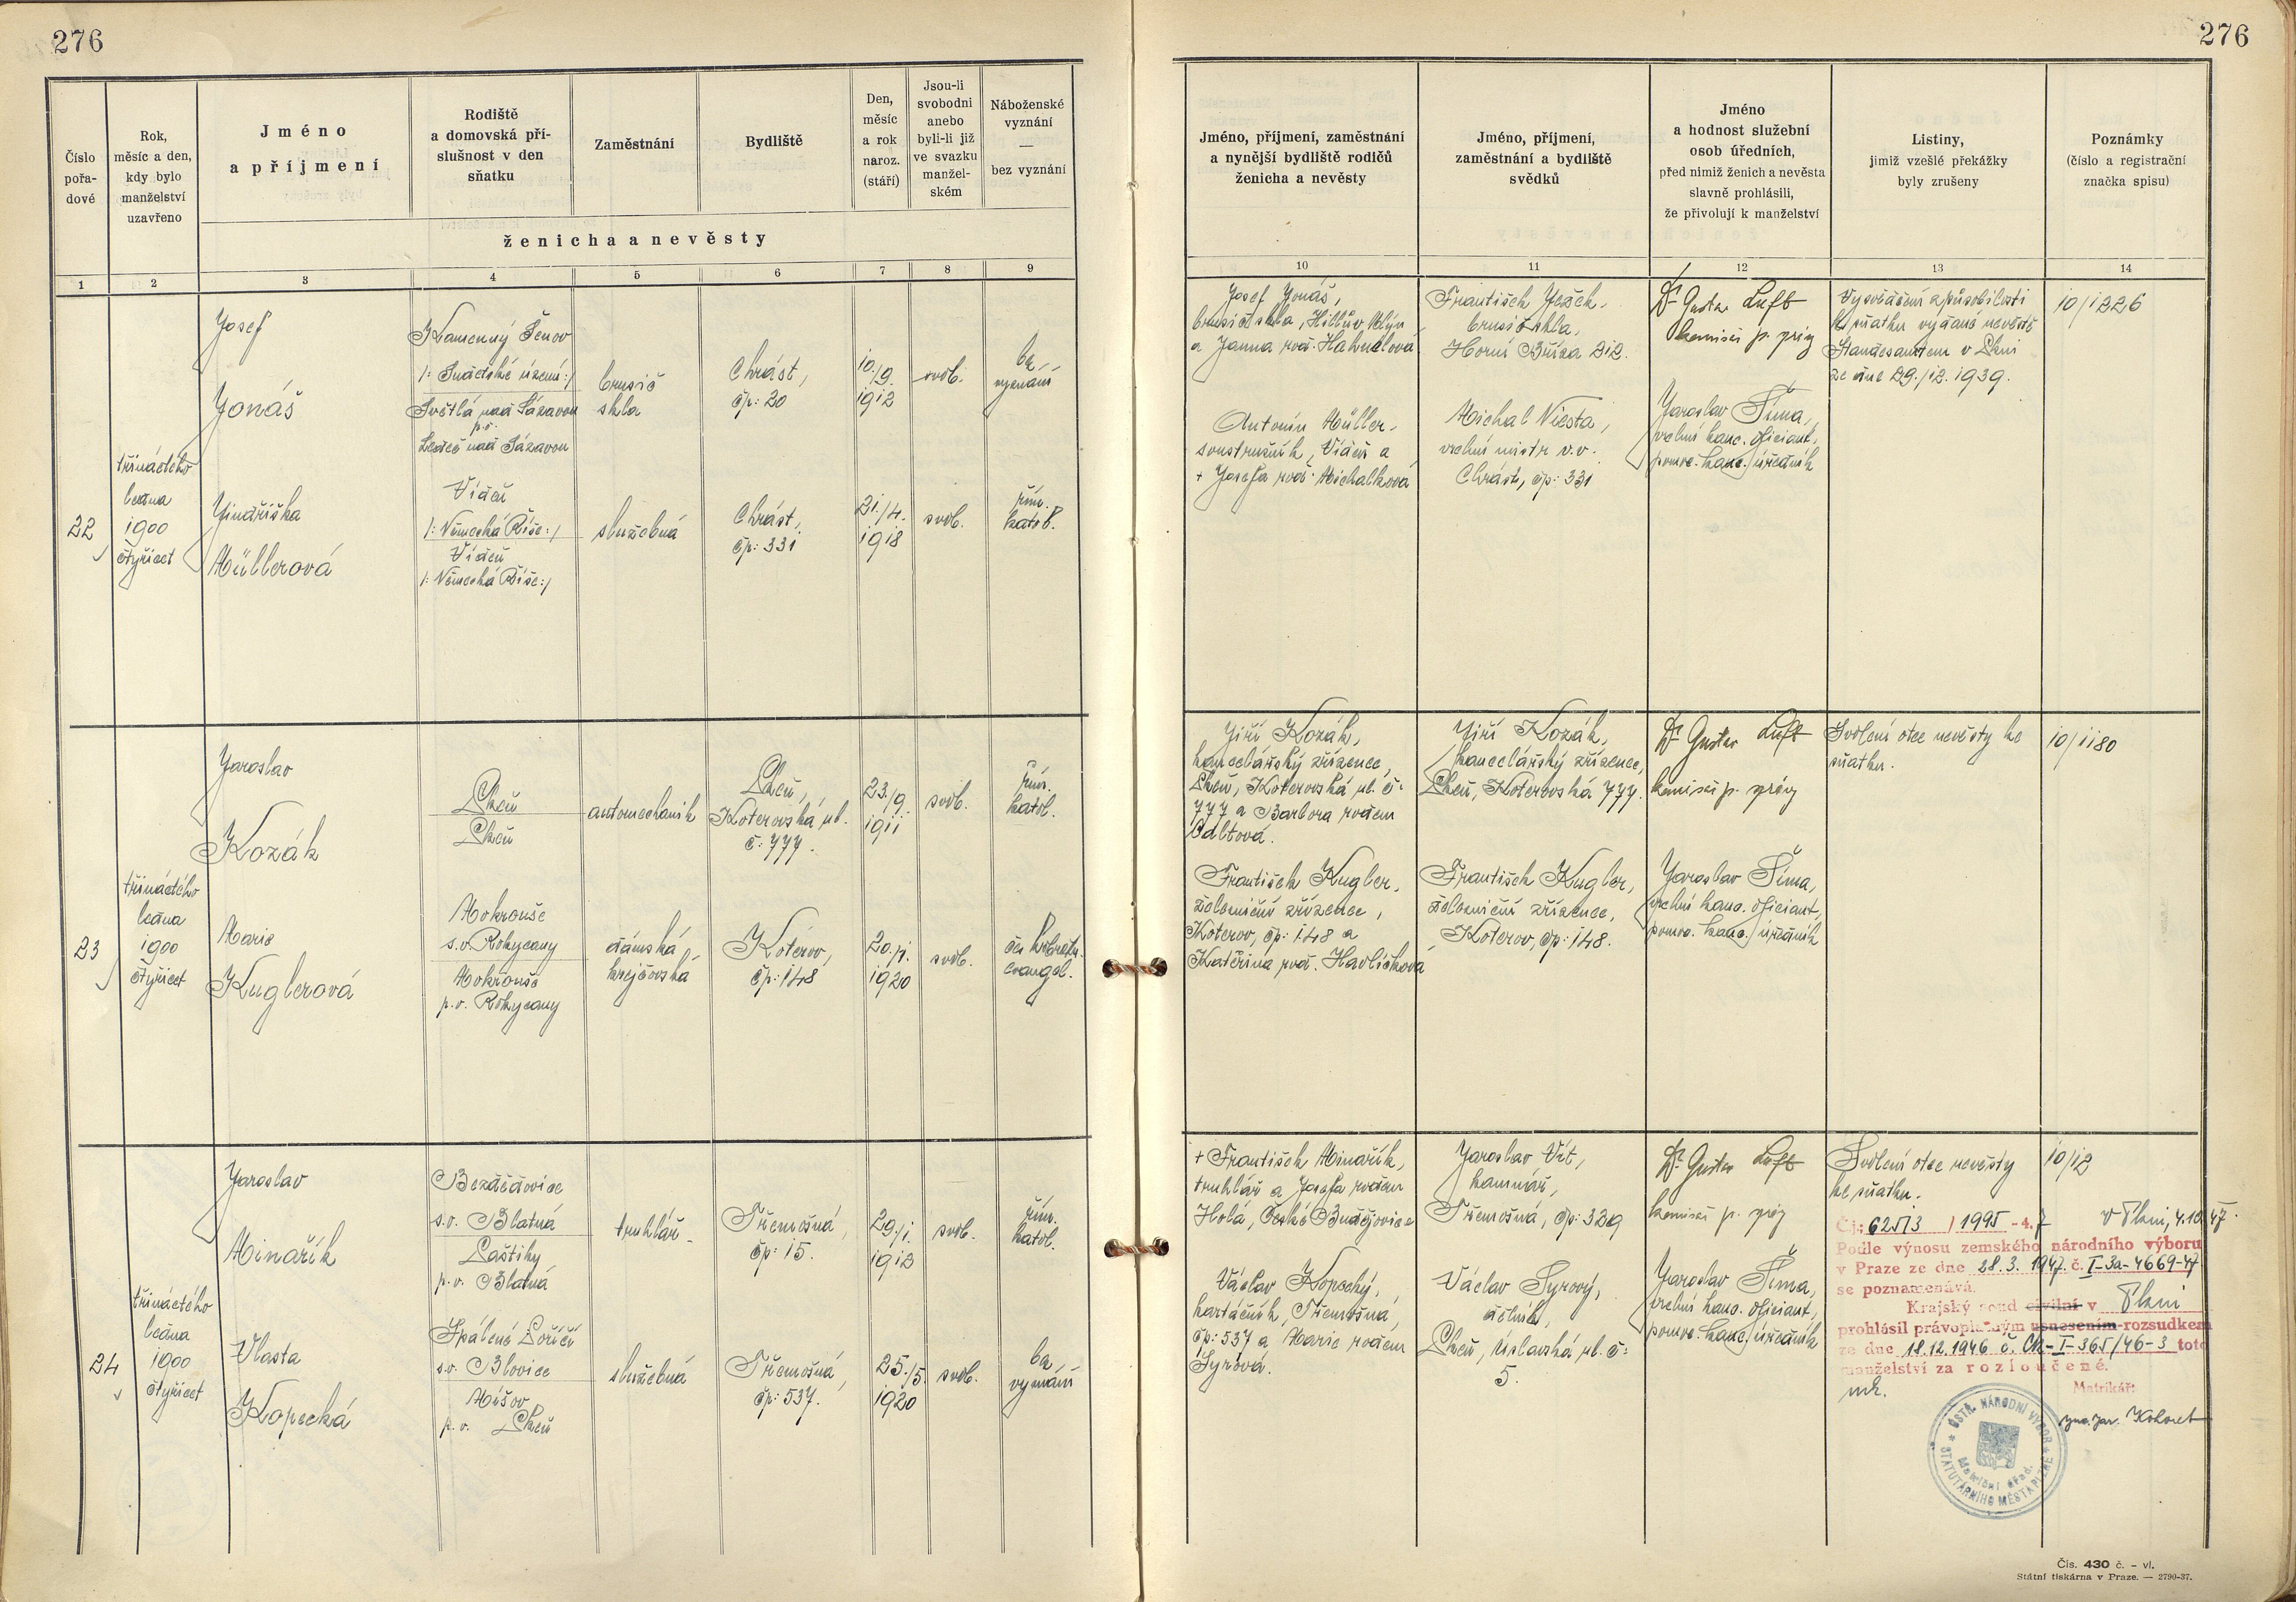 276
276
Číslo
pořa-
dové
Rok,
měsíc a den,
kdy bylo
manželství
uzavřeno
Jméno
a příjmení
Rodiště
a domovská pří-
slušnost v den
sňatku
Zaměstnání
Bydliště
Den,
měsíc
a rok
naroz.
(stáří)
Jsou-li
svobodni
anebo
byli-li již
ve svazku
manžel-
ském
Náboženské
vyznání
—
bez vyznání
ženicha a nevěsty
1 2 3 4 5 6 7 8 9
Jméno, příjmení, zaměstnání
a nynější bydliště rodičů
ženicha a nevěsty
Jméno, příjmení,
zaměstnání a bydliště
svědků
Jméno
a hodnost služební
osob úředních,
před nimiž ženich a nevěsta
slavně prohlásili,
že přivolují k manželství
Listiny,
jimiž vzešlé překážky
byly zrušeny
Poznámky
(číslo a registrační
značka spisu)
10 11 12 13 14
22
třináctého
ledna
1900
čtyřicet
Josef
Jonáš
Kamenný Šenov
/: Sudetské území :/
Světlá nad Sázavou
p.o.
Ledeč nad Sázavou
brusič
skla
Chrást,
čp: 20
10./9.
1912
svob.
bez
vyznání
Jindřiška
Müllerová
Vídeň
/: Německá Říše :/
Vídeň
/: Německá Říše :/
služebná
Chrást,
čp: 331
21./4.
1918
svob.
řím.
katol.
Josef Jonáš,
brusič skla, Hillův Mlýn
a Janna roz.
Antonín Müller,
soustružník, Vídeň a
+ Josefa roz. Michalková
František Ješek,
brusič skla,
Horní Bříza 212.
Michal Niesta,
vrchní mistr v.v.
Chrást, čp: 331
Dr Gustav Luft
komisař p. správy
Jaroslav Šíma,
vrchní kanc. oficiant,
pomoc. kanc. úředník
Vysvědčení způsobilosti
ke sňatku vydané nevěstě
Standesamtem v Plzni
ze dne 29./12. 1939.
10/1226
23
třináctého
ledna
1900
čtyřicet
Jaroslav
Kozák
Plzeň
Plzeň
automechanik
Plzeň,
Koterovská ul.
č: 777.
23./9.
1911
svob.
řím.
katol.
Marie
Kuglerová
Mokrouše
s.o. Rokycany
Mokrouše
p.o. Rokycany
dámská
krejčovská
Koterov,
čp: 148
20./1.
1920
svob.
čes. bratr.
evangel.
Jiří Kozák,
kancelářský zřízenec,
Plzeň, Koterovská ul. č:
777 a Barbora rodem
František Kugler,
železniční zřízenec,
Koterov, čp: 148 a
Kateřina roz. Havlíčková
Jiří Kozák,
kancelářský zřízenec,
Plzeň, Koterovská 777.
František Kugler,
železniční zřízenec,
Koterov, čp: 148.
Dr Gustav Luft
komisař p. správy
Jaroslav Šíma,
vrchní kanc. oficiant,
pomoc. kanc. úředník
Svolení otce nevěsty ke
sňatku.
10/1180
24
třináctého
ledna
1900
čtyřicet
Jaroslav
Minařík
Bezdědovice
s.o. Blatná
Laštiky
p.o. Blatná
truhlář
Třemošná,
čp: 15.
29./1.
1912
svob.
řím.
katol.
Vlasta
Kopecká
Spálené Poříčí
s.o. Blovice
Míšov
p.o. Plzeň
služebná
Třemošná,
čp: 537.
25./5.
1920
svob.
bez
vyznání
+ František Minařík,
truhlář a Josefa rodem
Holá, České Budějovice
Václav Kopecký,
kartáčník, Třemošná,
čp: 537 a Marie rodem
Syrová.
Jaroslav Vít,
kamnář,
Třemošná, čp: 329
Václav Syrový,
dělník,
Plzeň, Úslavská ul. č:
5.
Dr Gustav Luft
komisař p. správy
Jaroslav Šíma,
vrchní kanc. oficiant,
pomoc. kanc. úředník
Svolení otce nevěsty
ke sňatku.
10/12
Čj: 62513 / 1995 - 47 v Plzni, 4.10.47.
Podle výnosu zemského národního výboru
v Praze ze dne 28.3. 1947. č. I-3a-4669-47
se poznamenává
Krajský soud civilní v Plzni
prohlásil právoplatným usnesením-rozsudkem
ze dne 18.12.1946 č. Ck-I-365/46-3 toto
manželství za rozloučené.
Matrikář:
ÚSTŘ. NÁRODNÍ VÝBOR
STATUTÁRNÍHO MĚSTA PLZNĚ
Matriční úřad.
Čís. 430 č. – vl.
Státní tiskárna v Praze. — 2790-37.